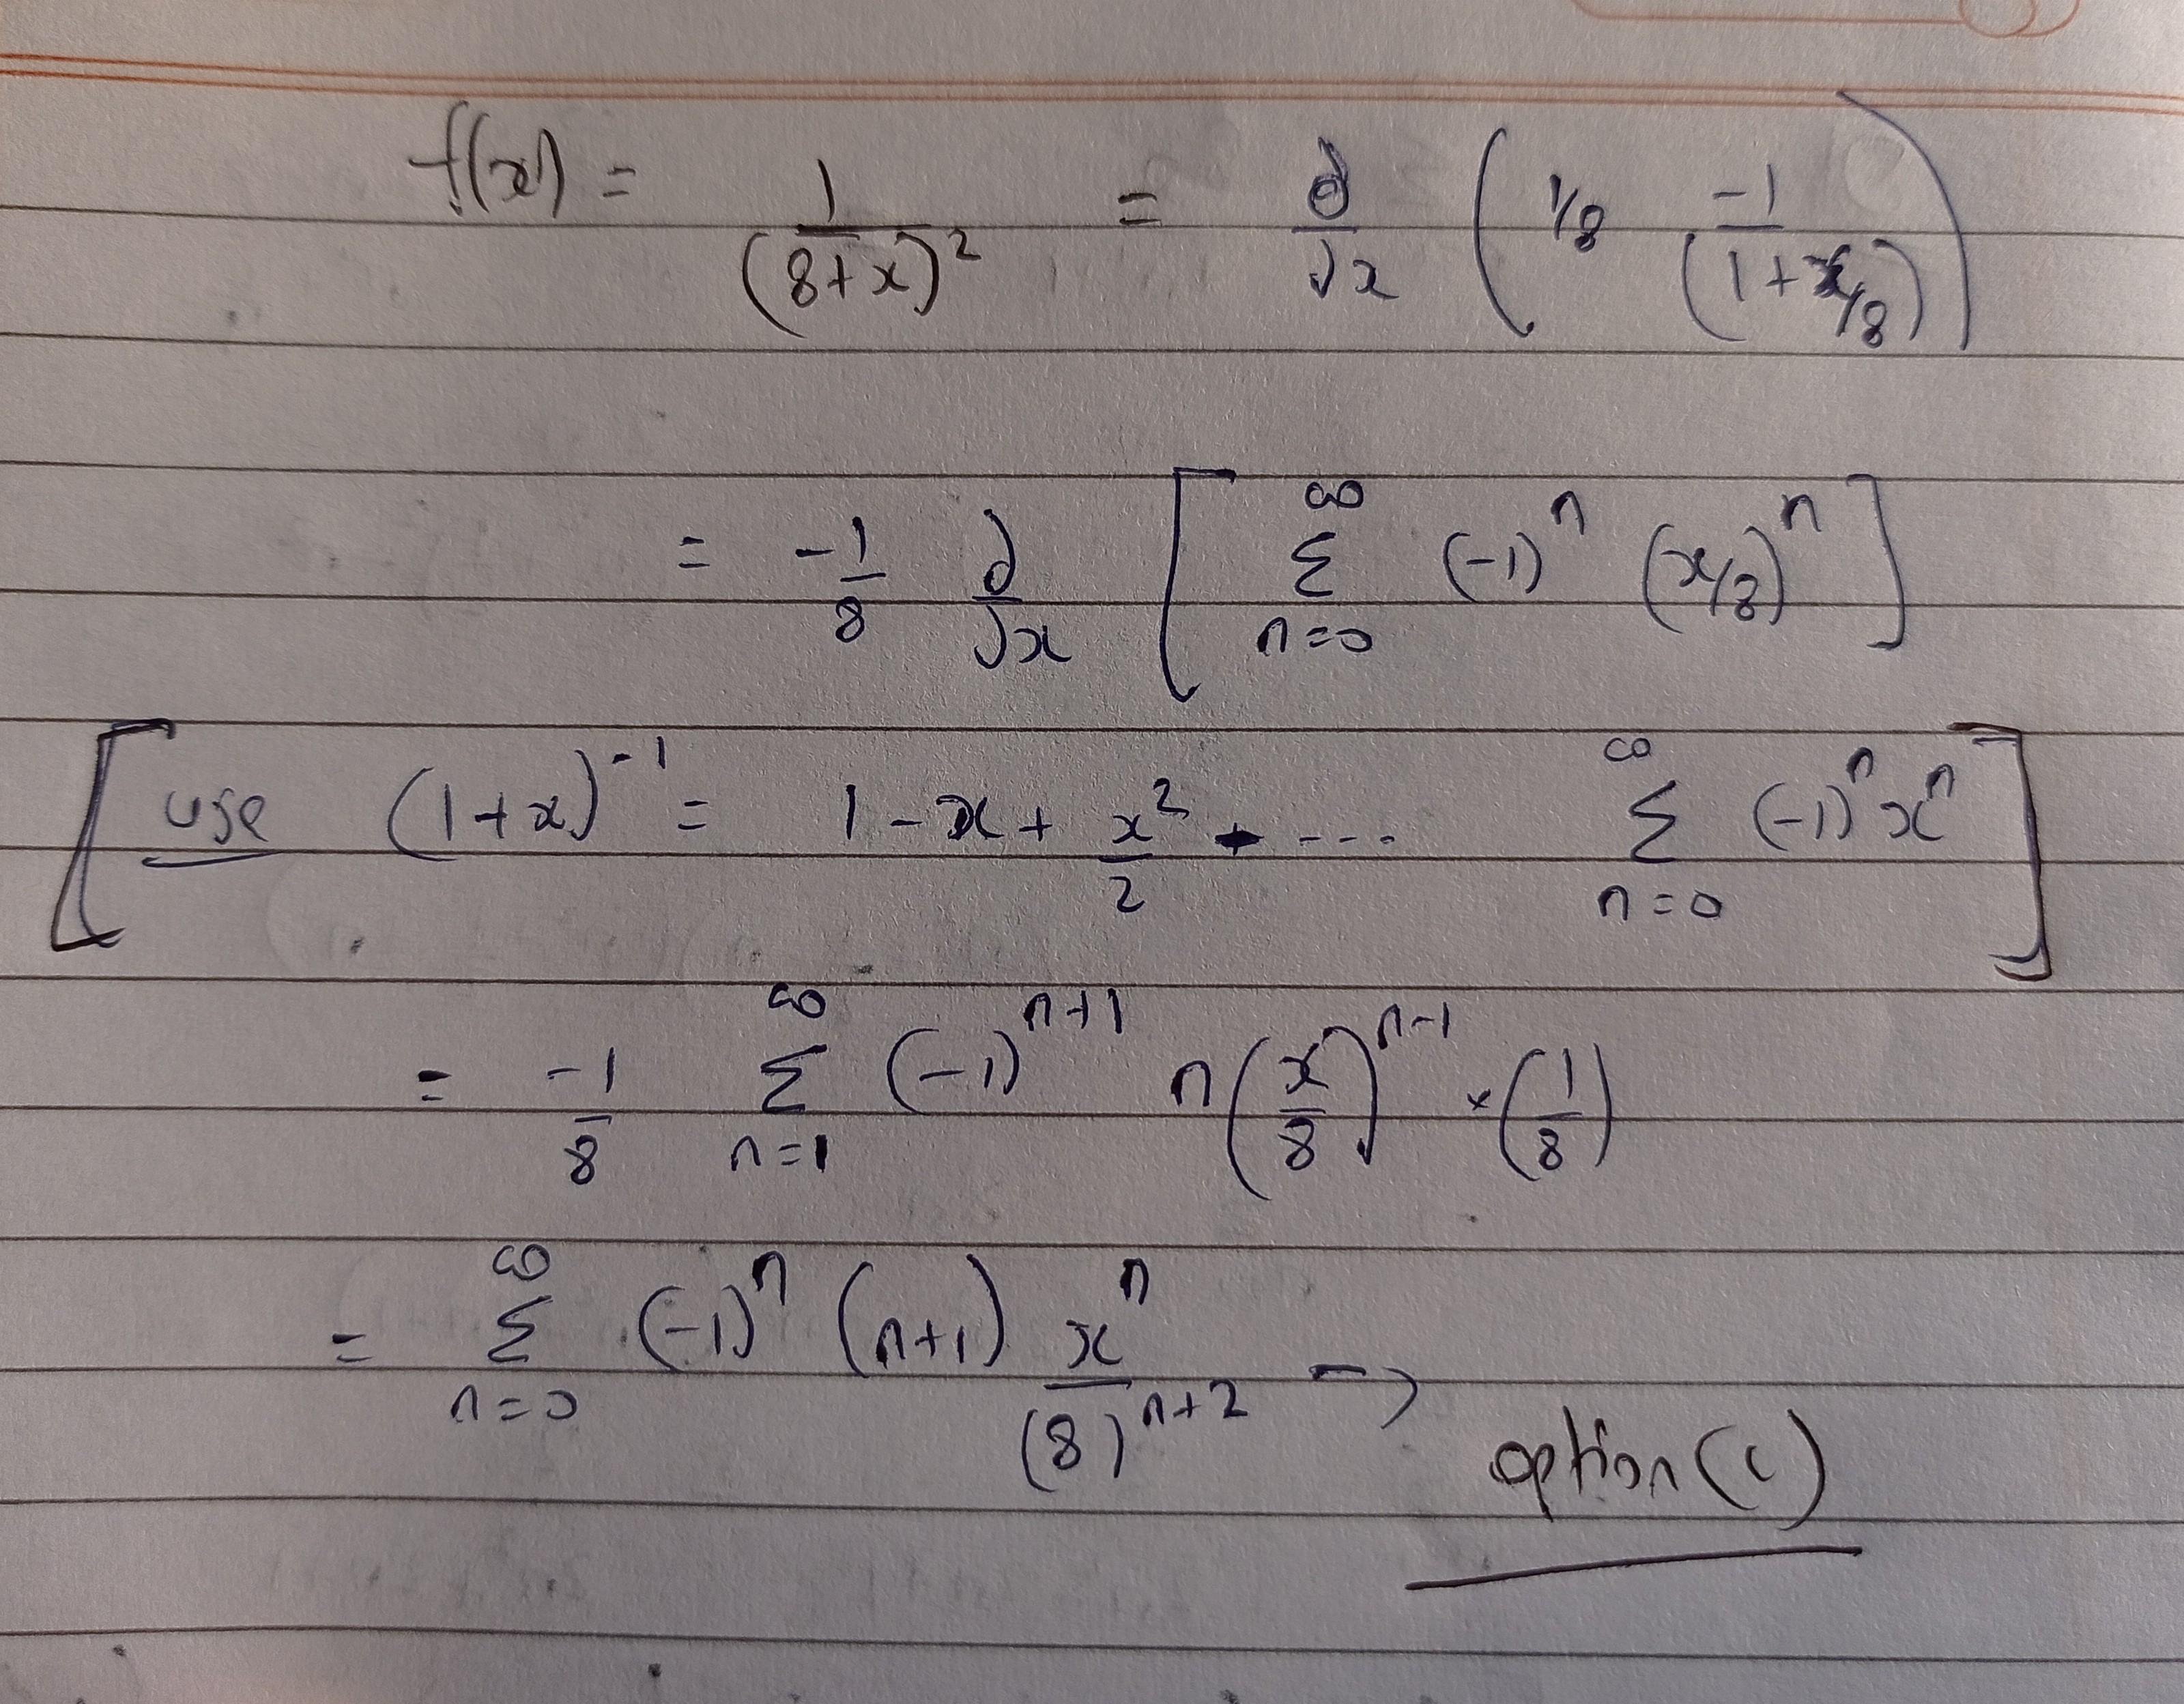 f(x) = 1/(8+x)² = ∂/∂x (1/8 -1/(1+x/8))
= -1/8 ∂/∂x [∞Σn=0 (-1)ⁿ (x/8)ⁿ]
[use (1+x)⁻¹ = 1 - x + x²/2 + ---- ∞Σn=0 (-1)ⁿ xⁿ]
= -1/8 ∞Σn=1 (-1)ⁿ⁺¹ n(x/8)ⁿ⁻¹ × (1/8)
= ∞Σn=0 (-1)ⁿ (n+1) xⁿ/(8)ⁿ⁺² →
option (c)